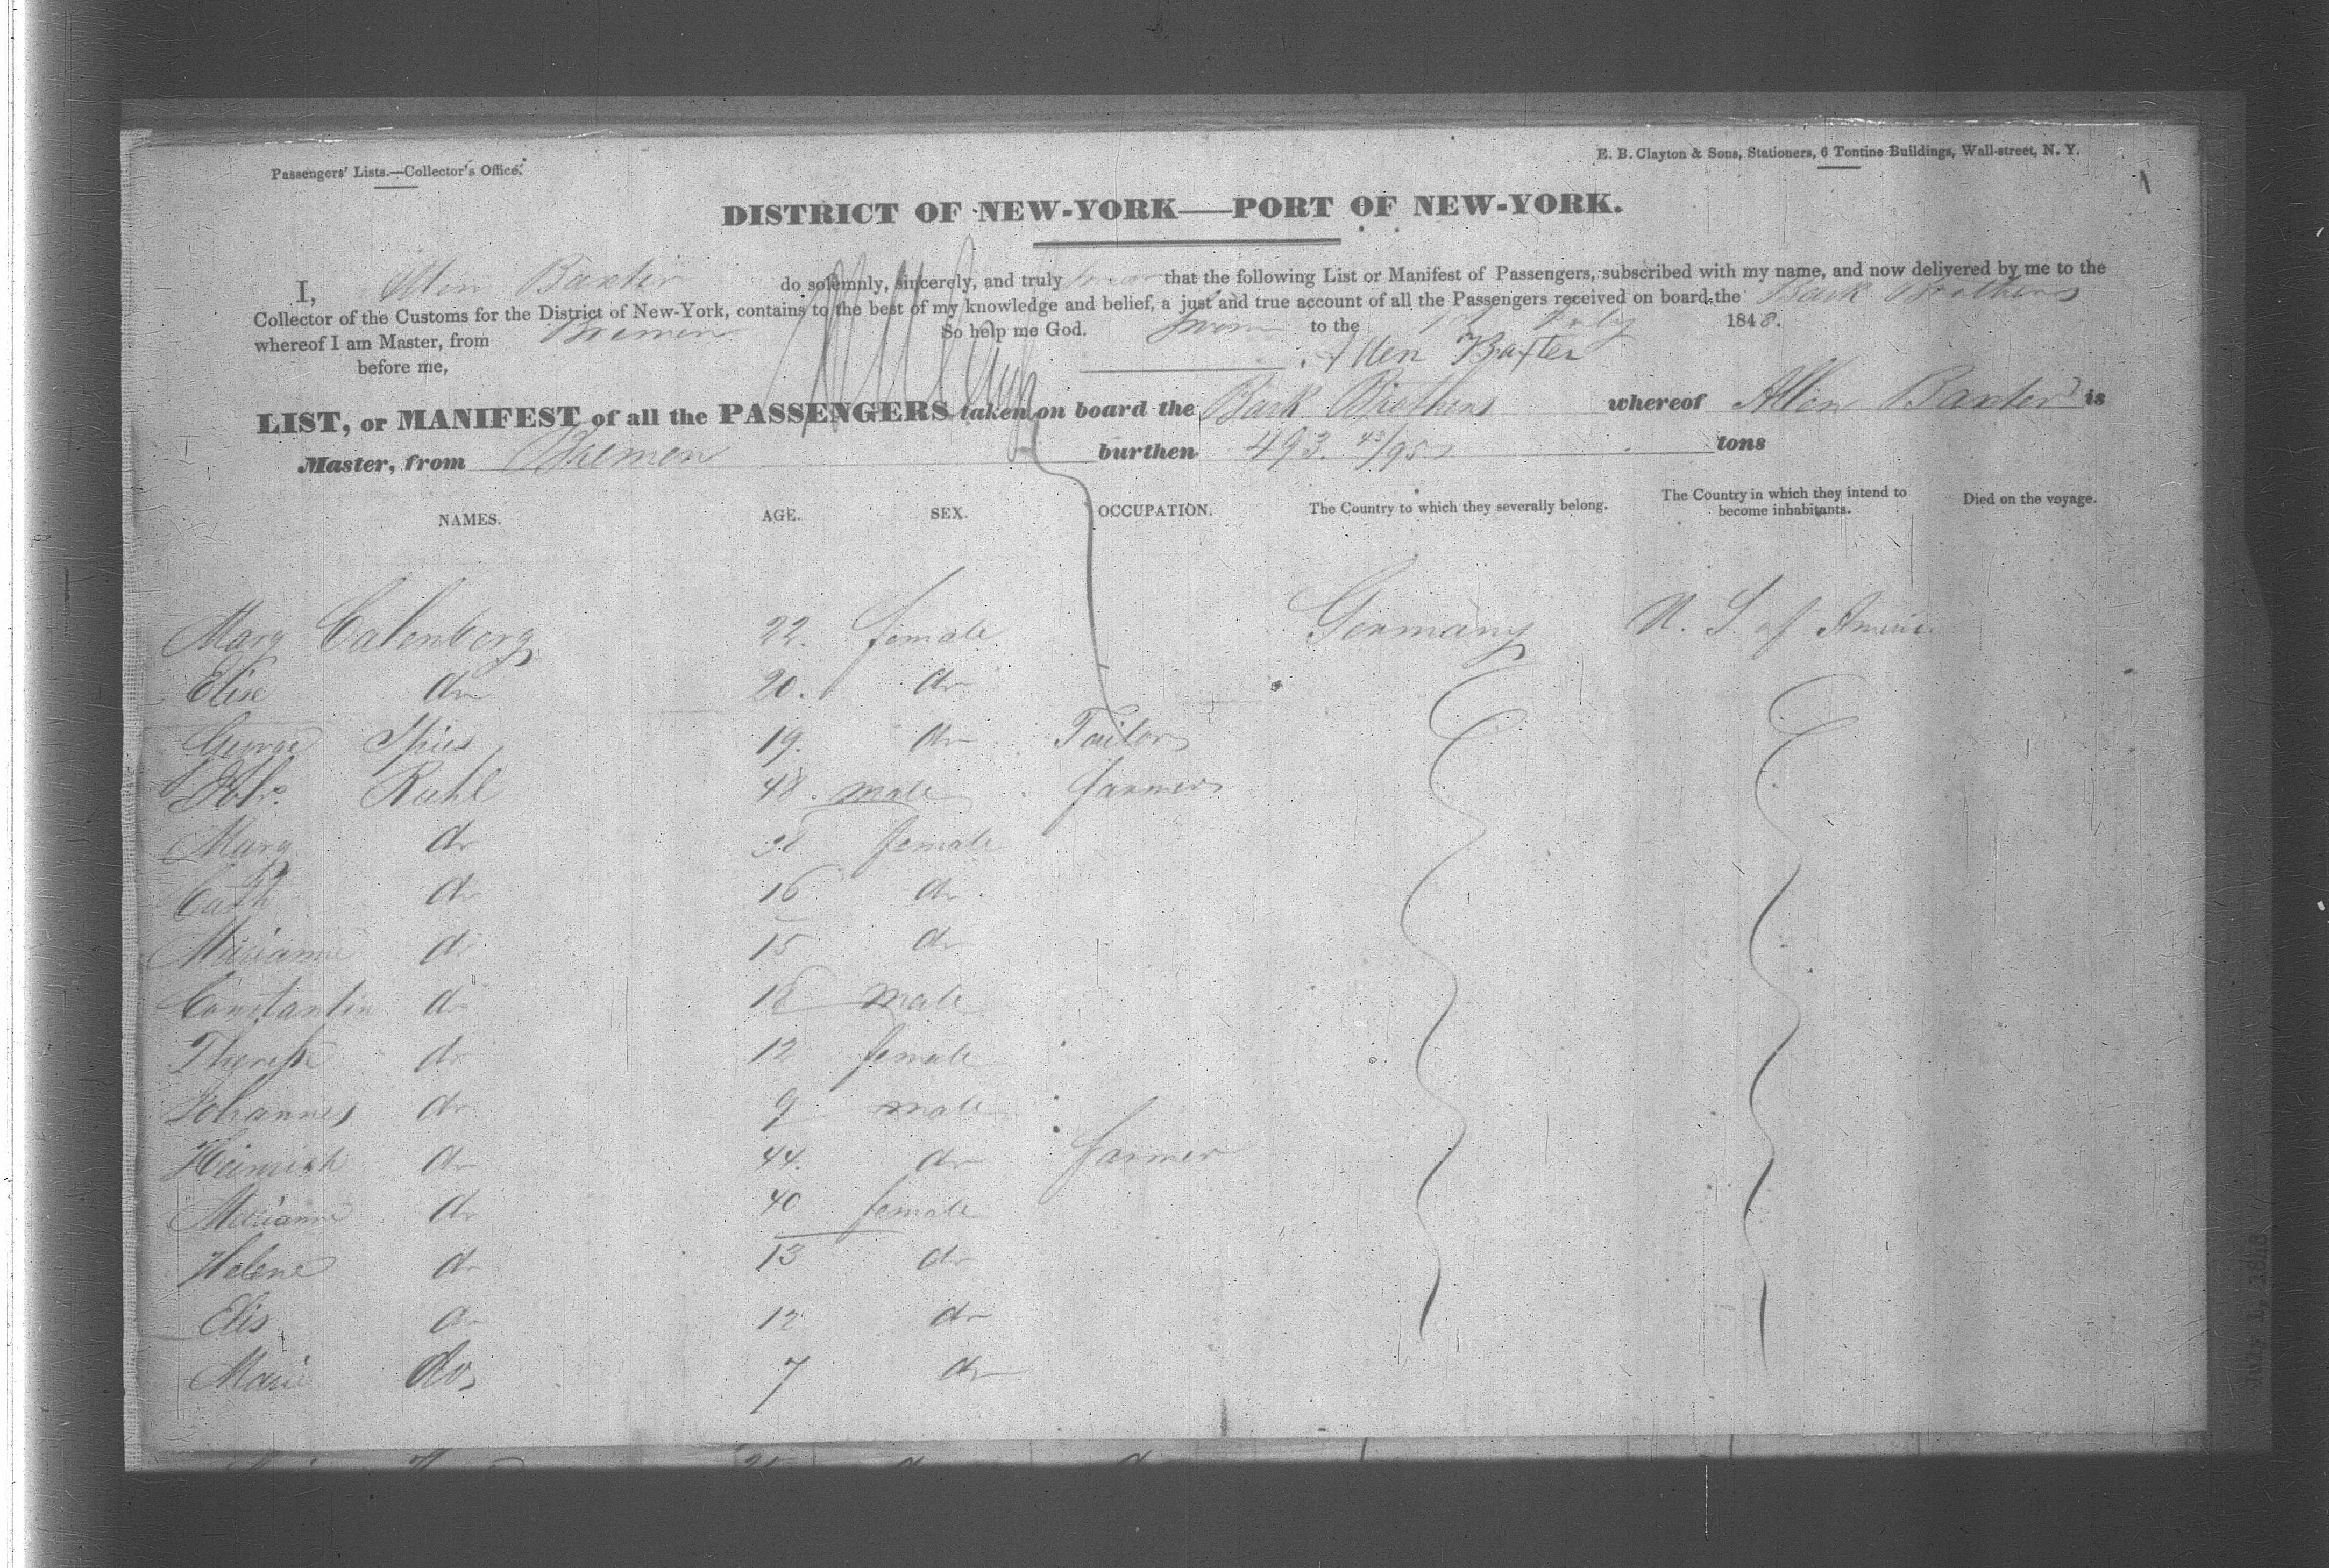 Passengers' Lists.—Collector's Office.
E. B. Clayton & Sons, Stationers, 6 Tontine Buildings, Wall-street, N. Y.
DISTRICT OF NEW-YORK—PORT OF NEW-YORK.
I, Allen Baxter do solemnly, sincerely, and truly swear that the following List or Manifest of Passengers, subscribed with my name, and now delivered by me to the
Collector of the Customs for the District of New-York, contains to the best of my knowledge and belief, a just and true account of all the Passengers received on board the Bark Brothers
whereof I am Master, from Bremen So help me God. Sworn to the July 1848.
before me, Allen Baxter
LIST, or MANIFEST of all the PASSENGERS taken on board the Bark Brothers whereof Allen Baxter is
Master, from Bremen burthen 493. 43/95 tons
NAMES. AGE. SEX. OCCUPATION. The Country to which they severally belong. The Country in which they intend to become inhabitants. Died on the voyage.
Marg Calenberg 22. female Germany U. S. of America
Elise do 20. do
George Spies 19. do Tailor
Johs. Ruhl 48. male farmer
Marg do 38 female
Cath do 16 do
Marianne do 15 do
Constantin do 18 male
Therese do 12 female
Johannes do 9 male
Heinrich do 44. do farmer
Marianne do 40 female
Helene do 13 do
Elis do 12 do
Marie do 7 do